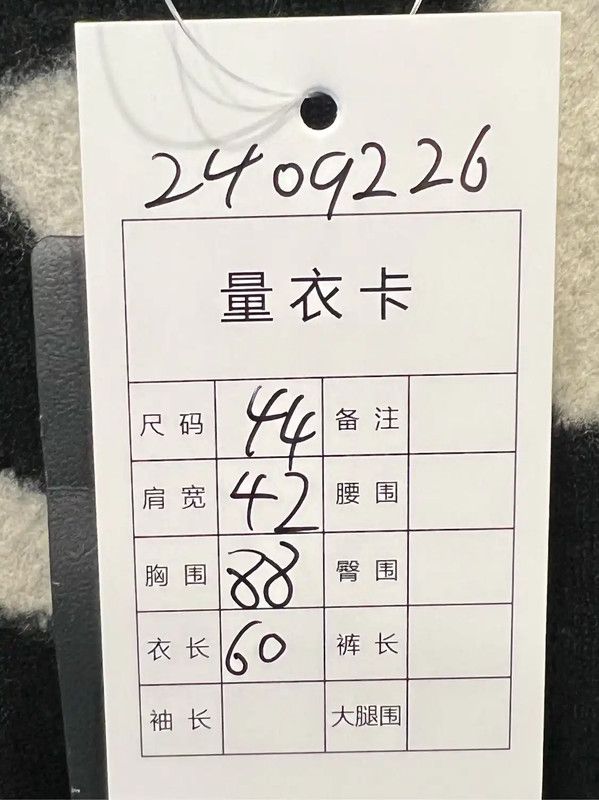 2409226
量衣卡
尺码 44 备注
肩宽 42 腰围
胸围 88 臀围
衣长 60 裤长
袖长 大腿围